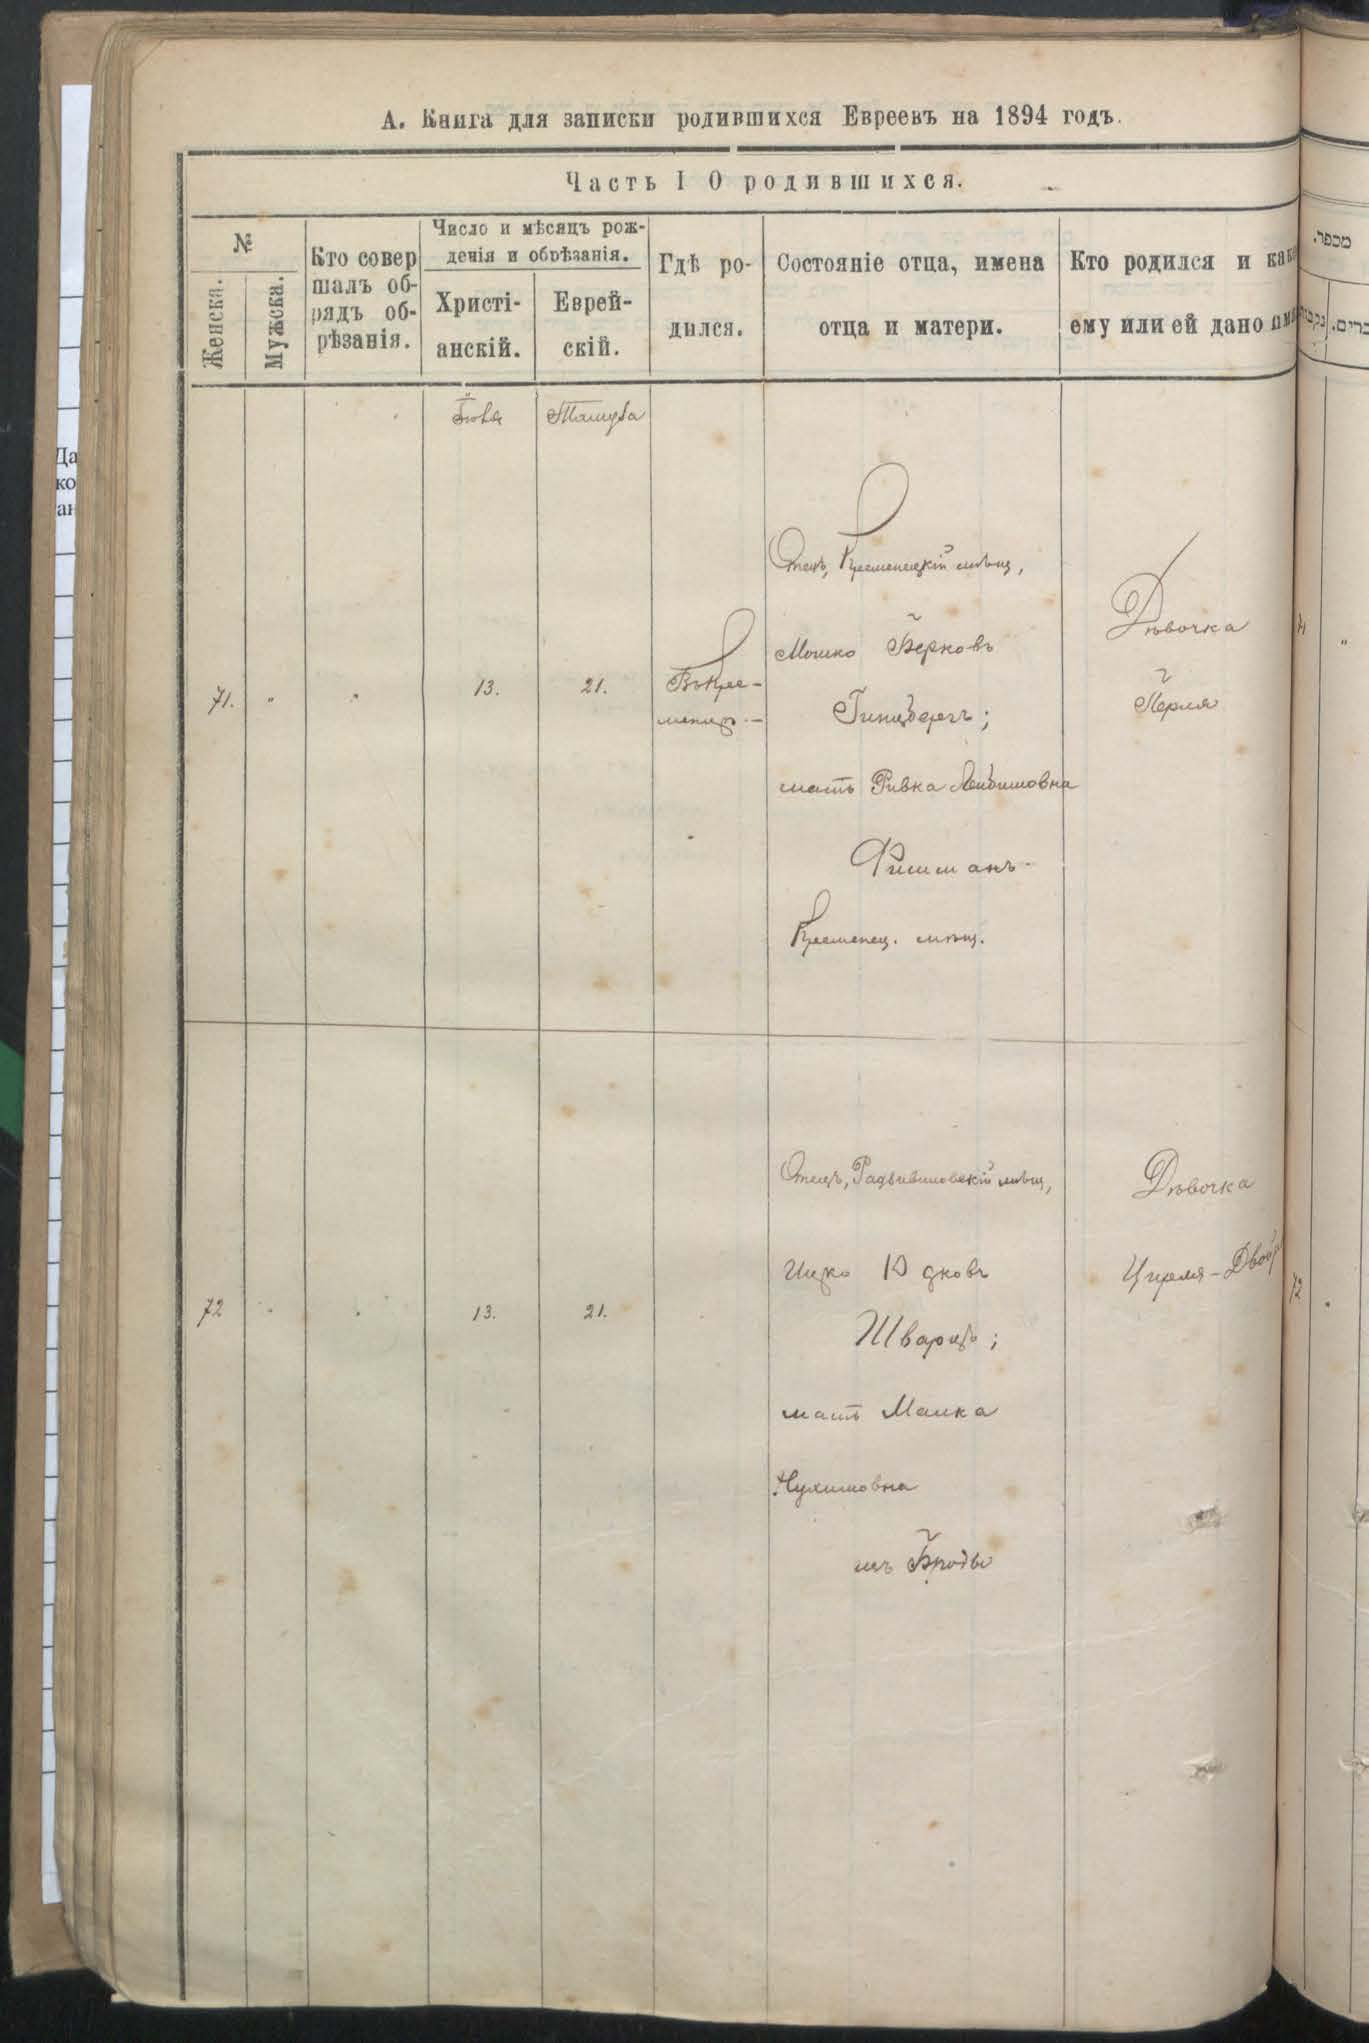 А. Книга для записки родившихся Евреевъ на 1894 годъ.
Часть I О родившихся.
№
Женска.
Мужска.
Кто совер
шалъ об-
рядъ об-
рѣзанія.
Число и мѣсяцъ рож-
денія и обрѣзанія.
Христі-
анскій.
Еврей-
скій.
Гдѣ ро-
дился.
Состояніе отца, имена
отца и матери.
Кто родился и како
ему или ей дано имя
מכפר.
Іюля
Тамуза
71.
"
"
13.
21.
Въ Кре-
менцѣ
Отецъ, Кременецкій мѣщ,
Мошко Берковъ
Гинцбергъ;
мать Ривка Лейбишовна
Фишманъ
Кременец. мѣщ.
Дѣвочка
Перля
71
"
72
13.
21.
Отецъ, Радзивиловскій мѣщ,
Ицко Юдковъ
Шварцъ;
мать Малка
Нухимовна
изъ Броды
Дѣвочка
Ципря-Двойр
72